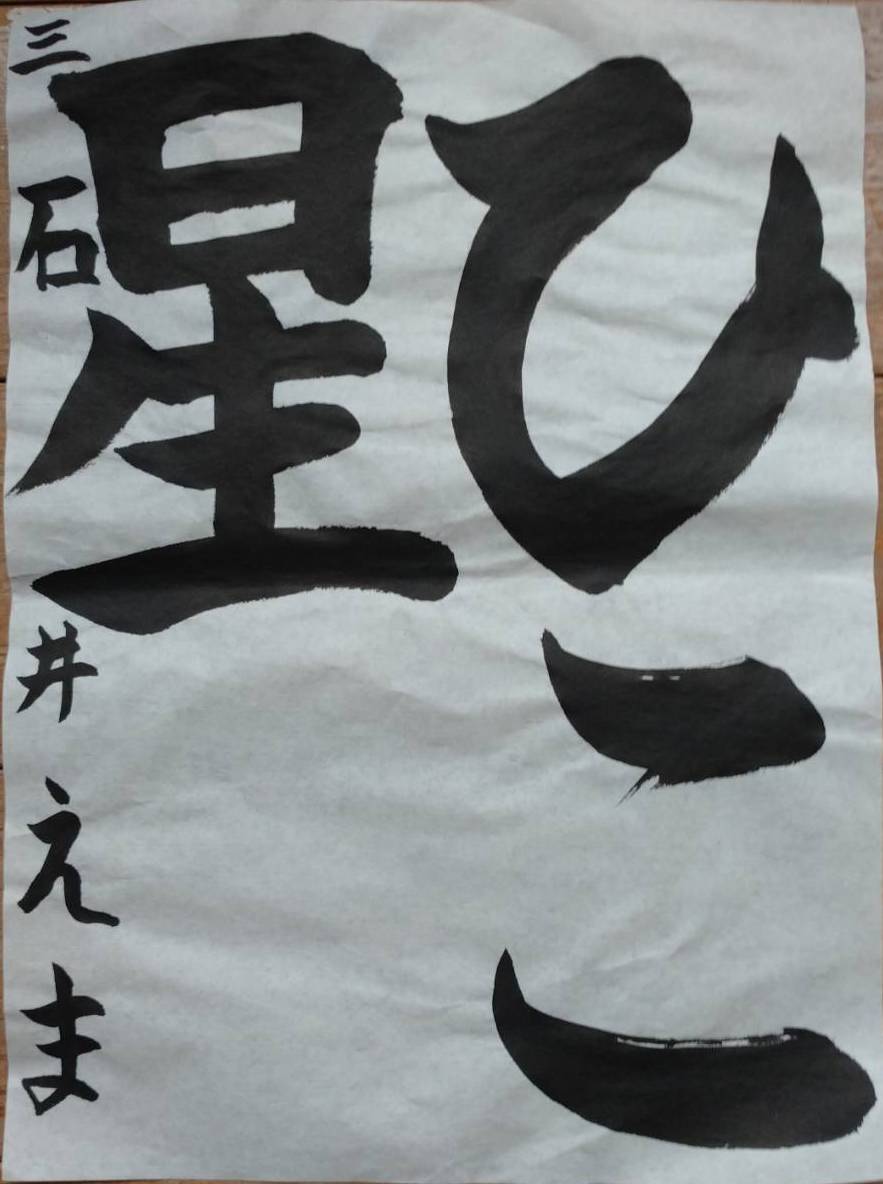 ひこ
星
三 石井えま